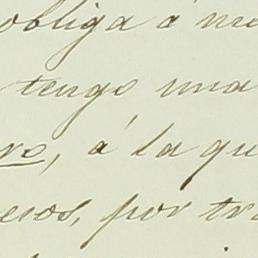 obliga á me
tengo una
ro, á la qu
esos, por tra